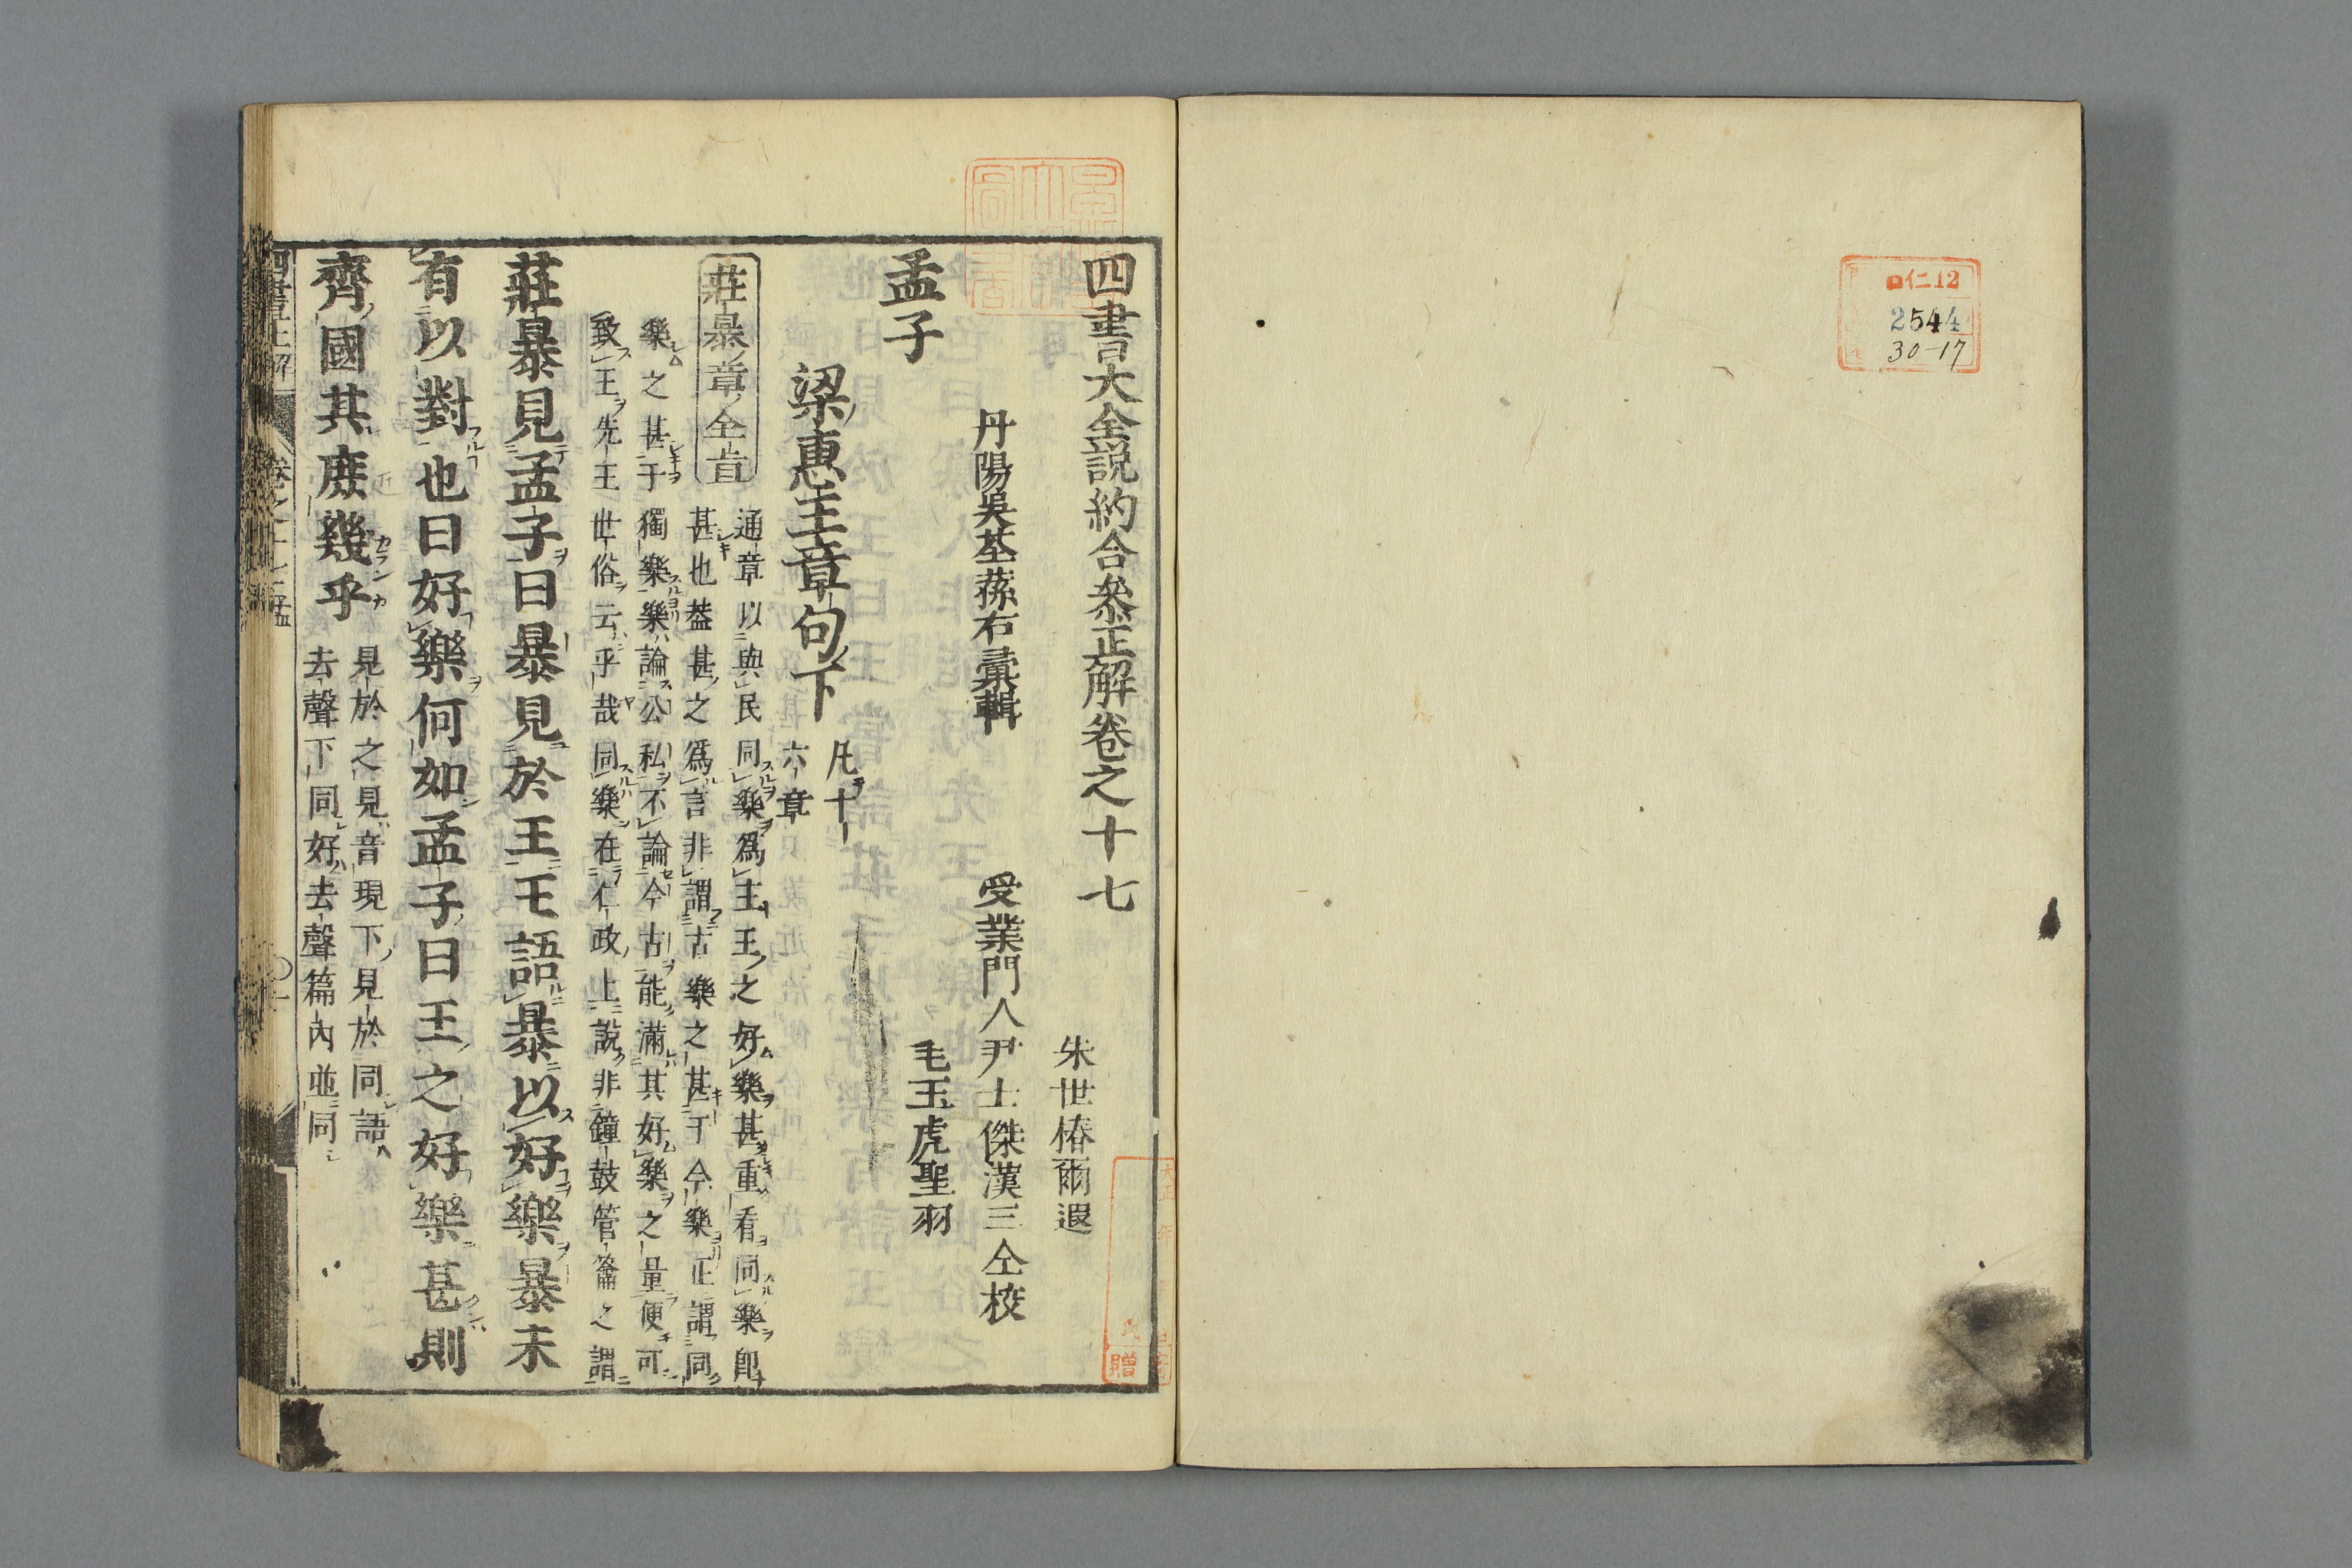 口仁12
2544
30-17
四書大全説約合參正解卷之十七
朱世椿爾遐
丹陽吳荃蓀右彙輯 受業門人尹士傑漢三仝校
毛玉虎聖羽
孟子
梁惠王章句下 凡十六章
莊暴章全旨
通章以與民同樂爲主王之好樂甚重看同樂卽
甚也葢甚之爲言非謂古樂之甚于今樂正謂同
樂之甚于獨樂樂論公私不論今古能滿其好樂之量便可
致王先王世俗云乎哉同樂在仁政上說非鐘鼓管籥之謂
莊暴見孟子曰暴見於王王語暴以好樂暴未
有以對也曰好樂何如孟子曰王之好樂甚則
齊國其庶幾乎
見於之見音現下見於同語
去聲下同好去聲篇內並同
贈